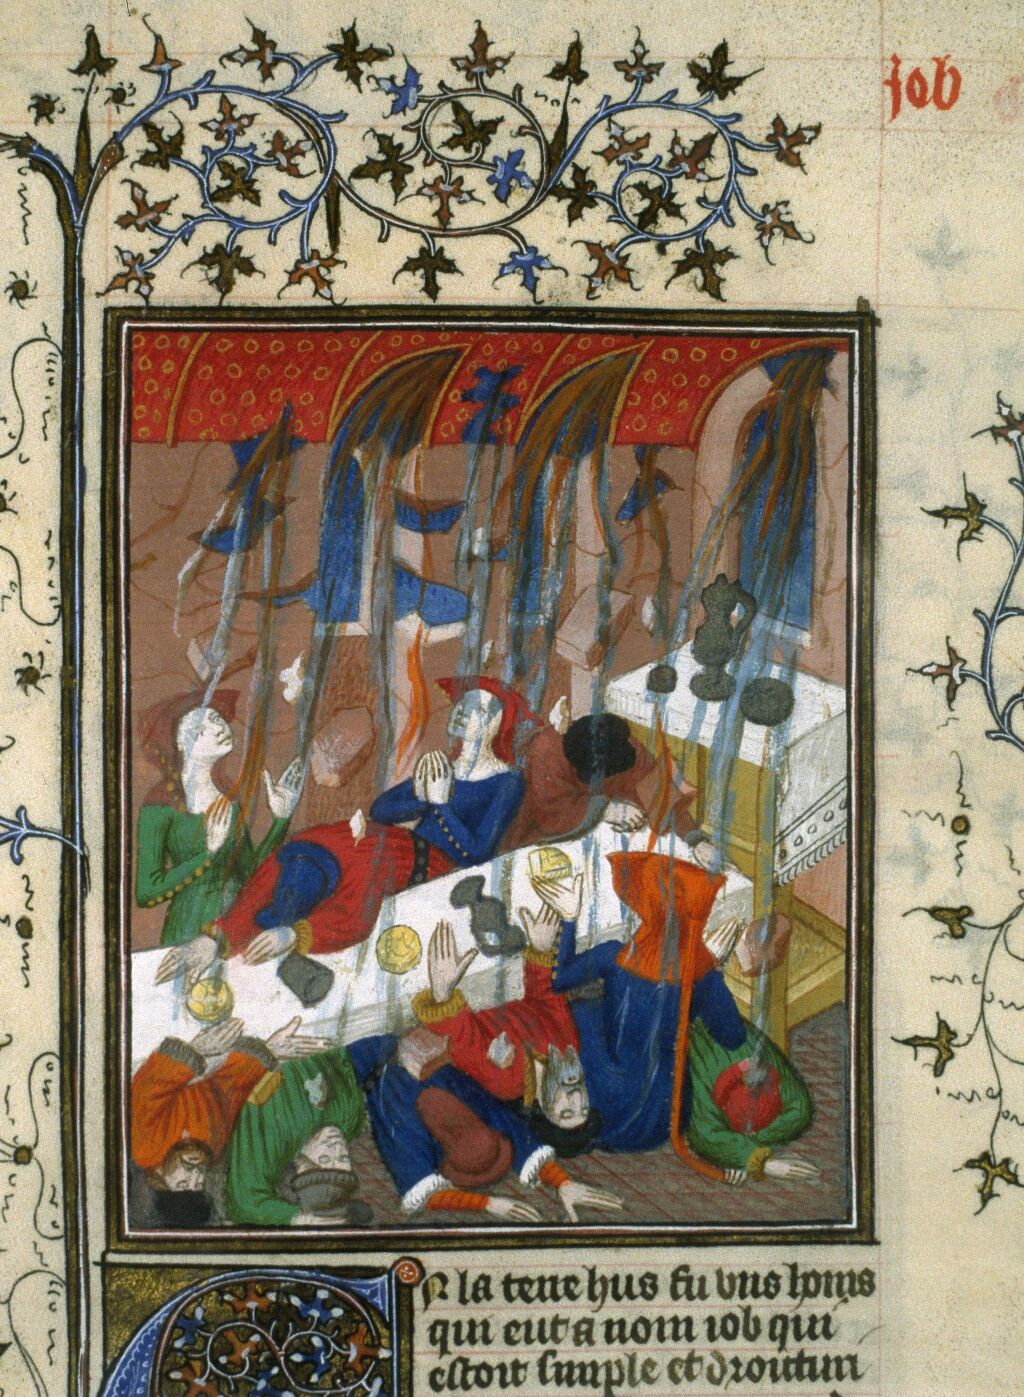 job
En la terre hus fu vns homs
qui eut a nom iob qui
estoit simple et droituri